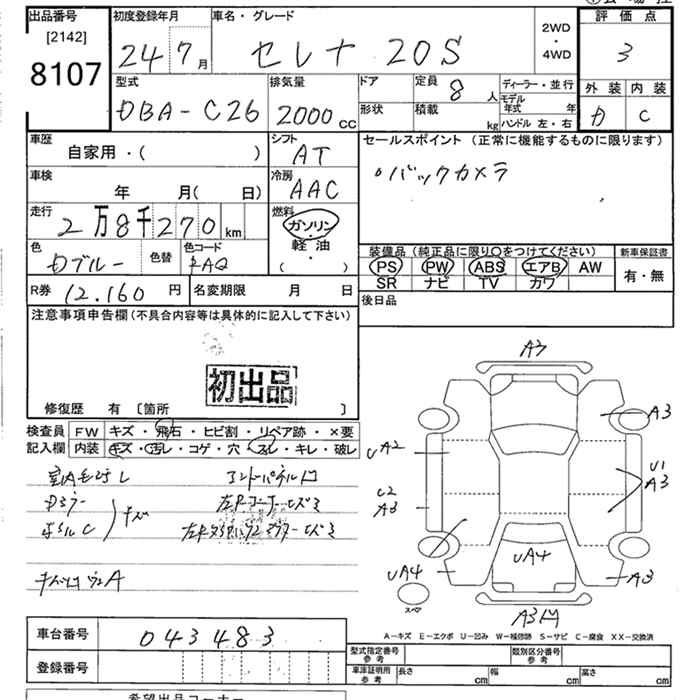 出品番号 初度登録年月 車名・グレード 評価点
[2142]
8107
24年7月 セレナ 20S 2WD・4WD 3
型式 排気量 ドア 定員 8人 ディーラー・並行 外装 内装
DBA-C26 2000cc 形状 積載 kg モデル年式 年 ハンドル 左・右 D C
車歴 シフト セールスポイント (正常に機能するものに限ります)
自家用・( ) AT
車検 冷房 ・バックカメラ
年 月( 日) AAC
走行 燃料
2万8千270km ガソリン・軽油・( )
色 色替 色コード 装備品 (純正品に限り○をつけてください) 新車保証書
Dブルー RAQ PS PW ABS エアB AW 有・無
SR ナビ TV カワ
R券 12.160円 名変期限 月 日 後日品
注意事項申告欄 (不具合内容等は具体的に記入して下さい)
初出品
修復歴 有 [箇所 ]
検査員 FW キズ・飛石・ヒビ割・リペア跡・×要
記入欄 内装 キズ・汚レ・コゲ・穴・スレ・キレ・破レ
A3
A3
UA2
U1
A3
U2
A3
UA4
UA4
A3
スペア
A3凹
A-キズ E-エクボ U-凹み W-補修跡 S-サビ C-腐食 XX-交換済
車台番号 043483
型式指定番号 参考 類別区分番号 参考
登録番号 車庫証明用 参考 長さ cm 幅 cm 高さ cm
希望出品コーナー